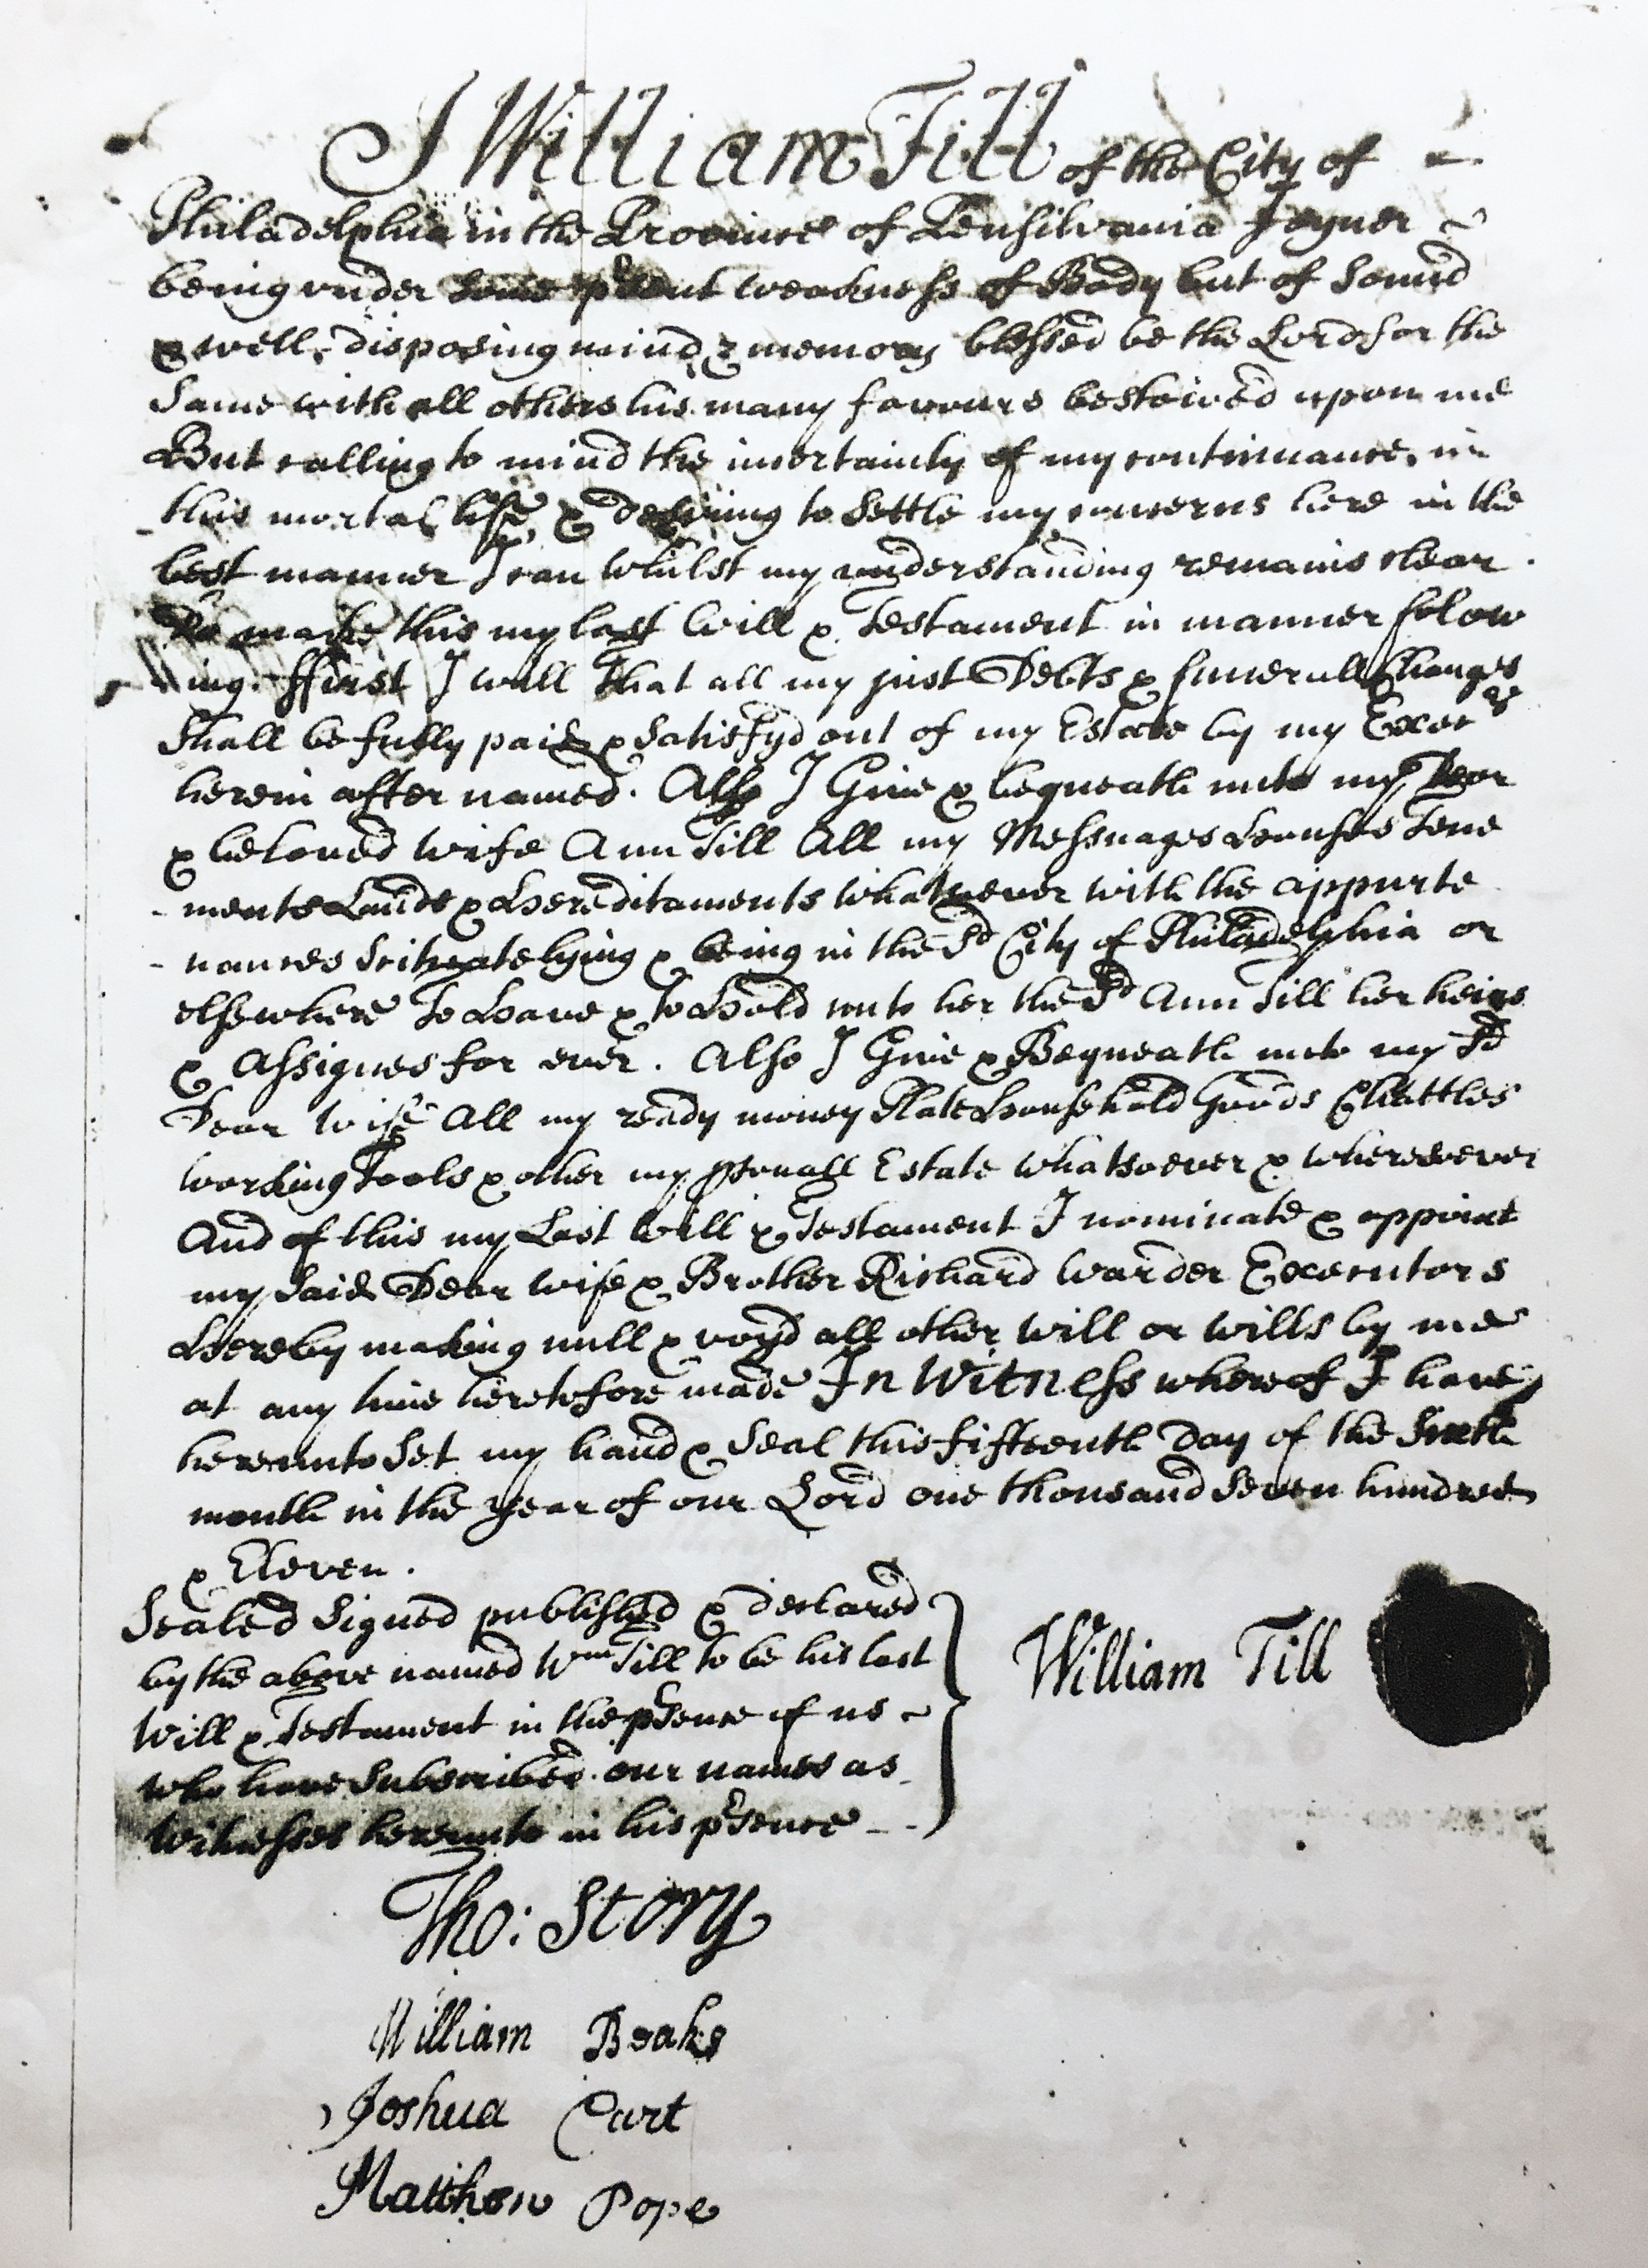 I William Till of the City of
Philadelphia in the Province of Pensilvania Joyner
being under some present weakness of Body but of Sound
& well disposing mind & memory blessed be the Lord for the
Same with all others his many favours bestowed upon me
But calling to mind the incertainty of my continuance in
this mortal life & desiring to Settle my concerns here in the
best manner I can whilst my understanding remains clear
Do make this my last Will & Testament in manner folow
ing. ffirst I will that all my just Debts & funerall Charges
Shall be fully paid & Satisfyd out of my Estate by my Execrs
herein after named. Also I Give & bequeath unto my Dear
& beloved wife Ann Till All my Messuages Houses Tene
ments Lands & Hereditaments whatsoever with the appurte
nances Scituate lying & being in the Sd City of Philadelphia or
elsewhere To Have & to Hold unto her the Sd Ann Till her heirs
& Assignes for ever. Also I Give & Bequeath unto my Sd
Dear Wife All my ready money Plate Household Goods Chattles
working Tools & other my psonall Estate whatsoever & wheresoever
And of this my Last Will & Testament I nominate & appoint
my Said Dear wife & Brother Richard Warder Executors
Hereby making null & voyd all other will or wills by me
at any time heretofore made In Witness whereof I have
hereunto Set my hand & Seal this fifteenth Day of the Sixth
month in the year of our Lord one thousand Seven hundred
& Eleven.
Sealed Signed published & declared
by the above named Wm Till to be his last
Will & Testament in the pSence of us
who have Subscribed our names as
Witnesses hereunto in his pSence
William Till
Tho: Story
William Beaks
Joshua Cart
Matthew Pope